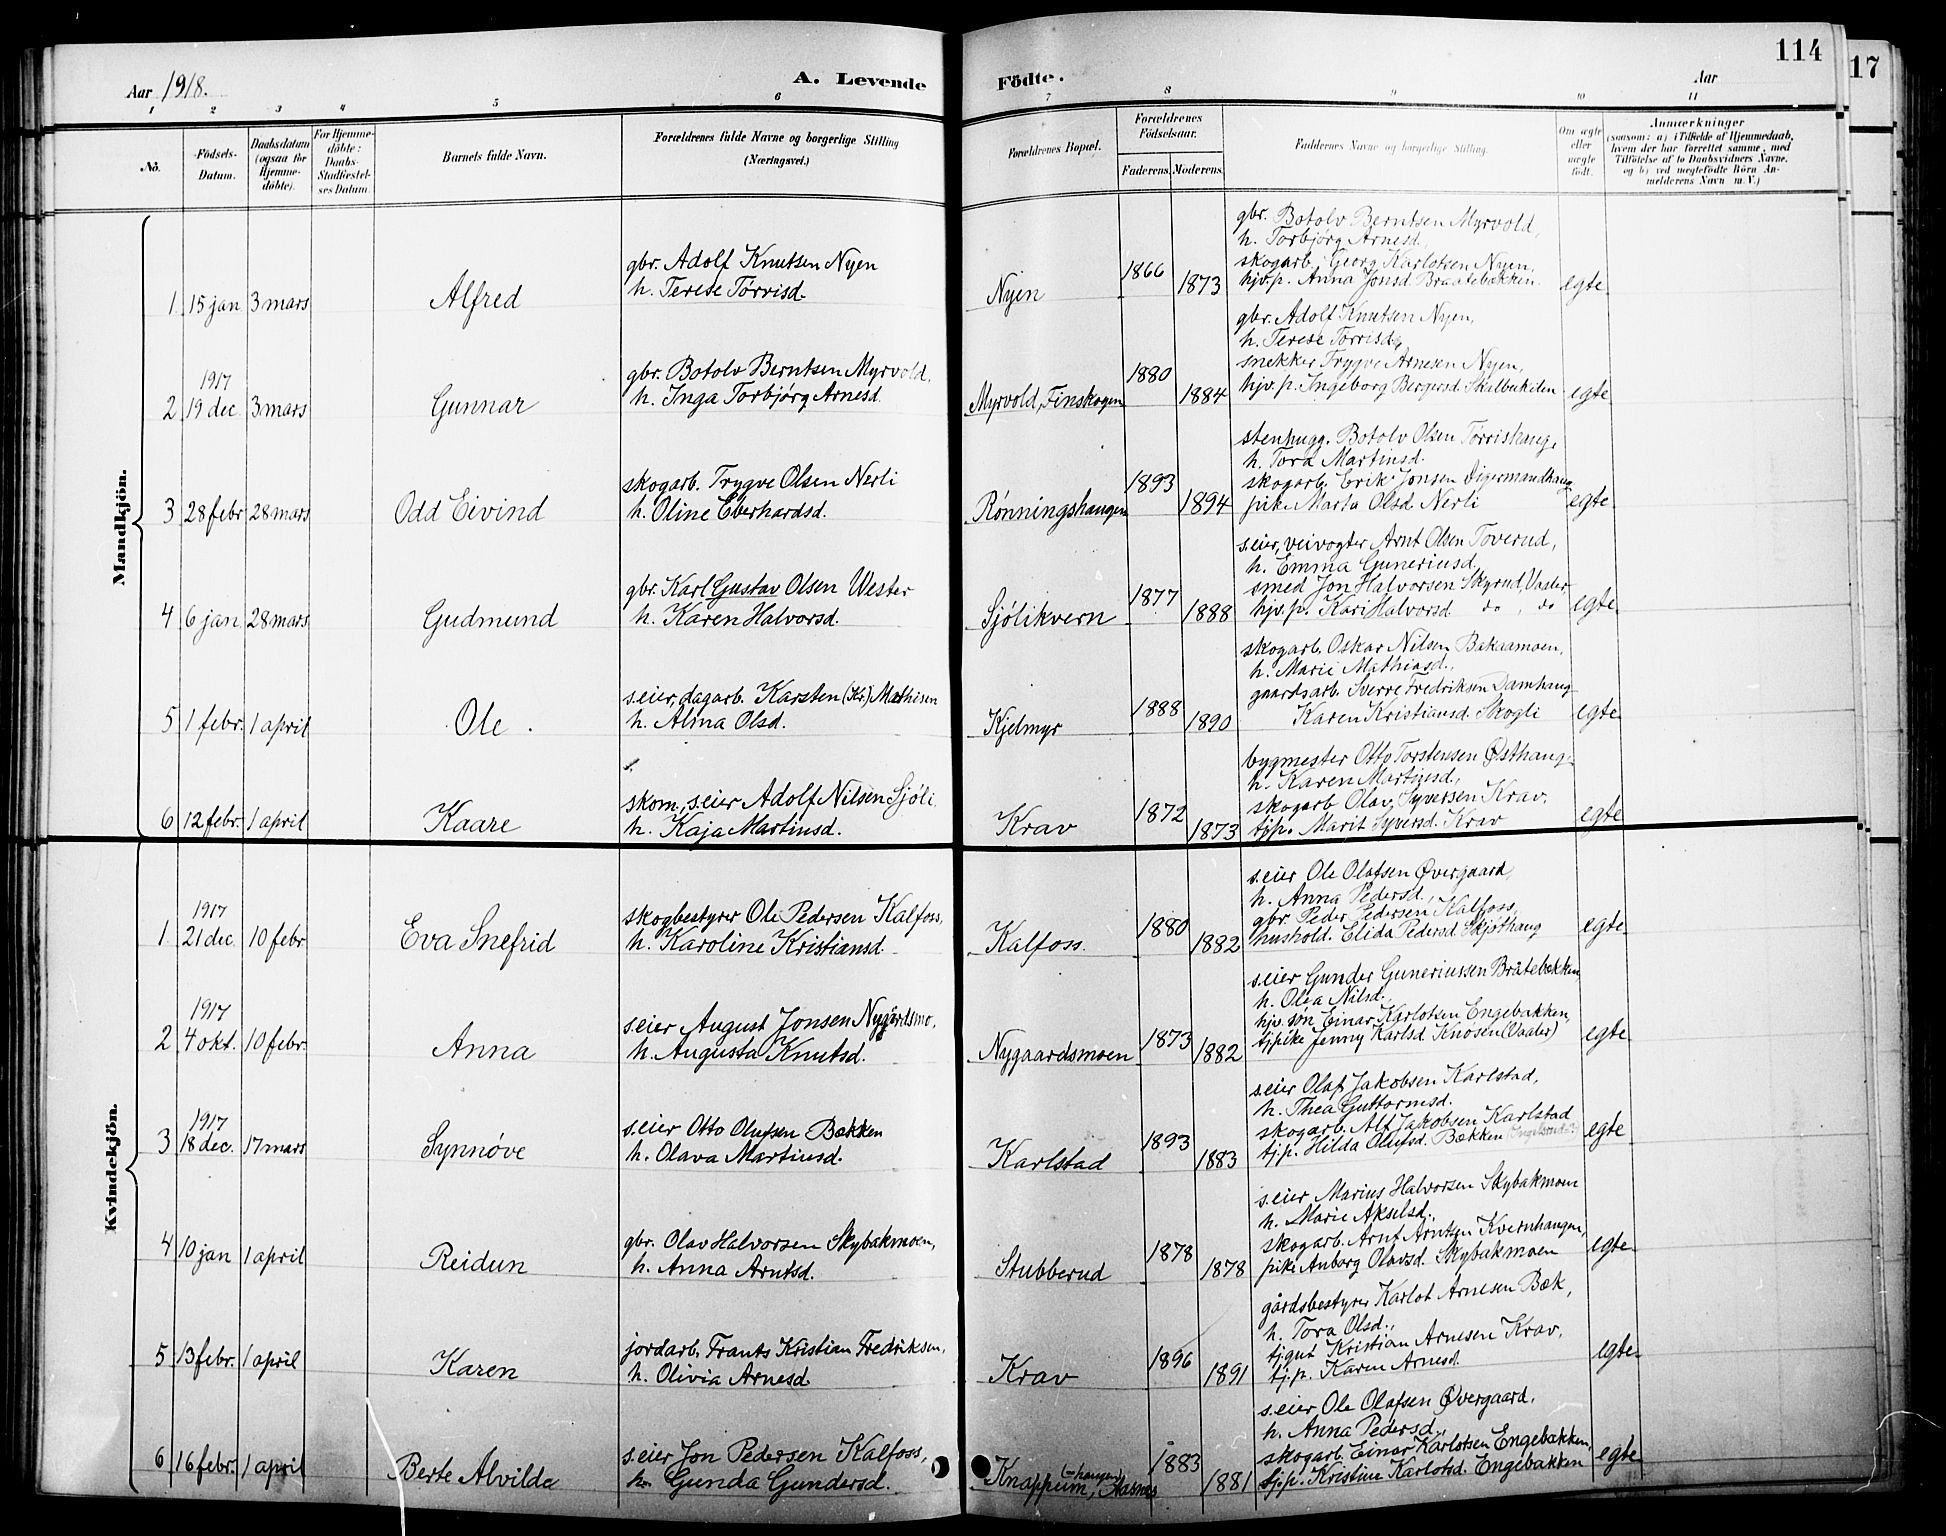 Aar 1918.
A. Levende
Födte.
Aar
114
17
1 2 3 4 5 6 7 8 9 10 11
No.
Födsels-
Datum.
Daabsdatum
(ogsaa for
Hjemme-
döbte).
For Hjemme-
döbte:
Daabs-
Stadfæstel-
ses Datum.
Barnets fulde Navn.
Forældrenes fulde Navne og borgerlige Stilling
(Næringsvei.)
Forældrenes Bopæl.
Forældrenes
Födselsaar.
Faderens. Moderens.
Faddernes Navne og borgerlige Stilling.
Om ægte
eller
uægte
født.
Anmærkninger
(saasom: a) i Tilfælde af Hjemmedaab,
hvem der har forrettet samme, med
Tilföielse af to Daabsvidners Navne,
og b) ved uægtefödte Börn An-
melderens Navn m. V.)
Mandkjön.
1 15 jan 3 mars Alfred
gbr. Adolf Knutsen Nyen
h. Terese Tørrisd.
Nyen 1866 1873
gbr. Botolv Berntsen Myrvold,
h. Torbjørg Arnesd.,
skogarb. Georg Karlotsen Nyen,
hjv.p. Anna Jonsd. Braatebækken.
egte
2 1917 19 dec. 3 mars Gunnar
gbr. Botolv Berntsen Myrvold,
h. Inga Torbjørg Arnesd.
Myrvold, Finskogen 1880 1884
gbr. Adolf Knutsen Nyen,
h. Terese Tørrisd.,
snekker Trygve Arnesen Nyen,
hjv.p. Ingeborg Bergersd. Skalbukilen
egte
3 28 febr 28 mars Odd Eivind
skogarb. Trygve Olsen Nerli
h. Oline Eberhardsd.
Rønningshaugen 1893 1894
stenhugg. Botolv Olsen Tørrishaug,
h. Tora Martinsd.
skogarb. Erik Jonsen Digermandhaug
pike Marta Olsd. Nerli
egte
4 6 jan. 28 mars Gudmund
gbr. Karl Gustav Olsen Wester
h. Karen Halvorsd.
Sjølikvern 1877 1888
s.eier, veivogter Arnt Olsen Toverud,
h. Emma Guneriusd.,
smed Jon Halvorsen Skyrud, Vaaler,
hjv.p. Kari Halvorsd do , do
egte
5 1 febr. 1 april Ole.
s.eier, dagarb. Karsten (Kr.) Mathisen
h. Alma Olsd.
Kjelmyr 1888 1890
skogarb. Oskar Nilsen Bakaamoen,
h. Marie Mathiasd.,
gaardsarb. Sverre Fredriksen Damhaug
Karen Kristiansd. Skogli
egte
6 12 febr. 1 april Kaare
skom., s.eier Adolf Nilsen Sjøli
h. Kaja Martinsd.
Krav 1872 1873
bygmester Otto Torstensen Østhaug
h. Karen Martinsd.,
skogarb Olav Syversen Krav,
tj.p. Marit Syversd. Krav
egte
Kvindekjön.
1 1917 21 dec. 10 febr. Eva Snefrid
skogbestyrer Ole Pedersen Kalfoss,
h. Karoline Kristiansd.
Kalfoss. 1880 1882
s.eier Ole Olafsen Øvergaard,
h. Anna Pedersd.,
gbr. Peder Pedersen Kalfoss,
hushold. Elida Pedersd. Skjøthaug
egte
2 1917 4 okt. 10 febr. Anna
s.eier August Jonsen Nygårdsmo,
h. Augusta Knutsd.
Nygaardsmoen 1873 1882
s.eier Gunder Guneriussen Bråtebækken,
h. Olea Nilsd.,
hjv. søn Einar Karlotsen Engebakken,
tj.pike Jenny Karlsd. Knosen (Vaaler)
egte
3 1917 18 dec. 17 mars Synnøve
s.eier Otto Olufsen Bækken
h. Olava Martinsd.
Karlstad 1893 1883
s.eier Olaf Jakobsen Karlstad,
h. Thea Guttormsd.
skogarb. Alf Jakobsen Karlstad
tj.p. Hilda Olufsd. Bækken
egte
4 10 jan 1 april Reidun
gbr. Olav Halvorsen Skybakmoen,
h. Anna Arntsd.
Stubberud 1878 1878
s.eier Marius Halvorsen Skybakmoen
h. Marie Akselsd.,
skogarb. Arnt Arntsen Kvernhaugen,
pike Anborg Olavsd. Skybakmoen
egte
5 13 febr. 1 april Karen
jordarb. Frants Kristian Fredriksen,
h. Olivia Arnesd.
Krav 1896 1891
gårdsbestyrer Karlot Arnesen Bæk,
h. Tora Olsd.,
tj.gut Kristian Arnesen Krav,
tj.p. Karen Arnesd.
egte
6 16 febr. 1 april Berte Alvilde
s.eier Jon Pedersen Kalfoss,
h. Gunda Gundersd.
Knappum, (-haugen) Aasnes 1883 1881
s.eier Ole Olafsen Øvergaard,
h. Anna Pedersd.,
skogarb. Einar Karlotsen Engebakken,
tj.p. Kristine Karlotsd. Engebakken
egte